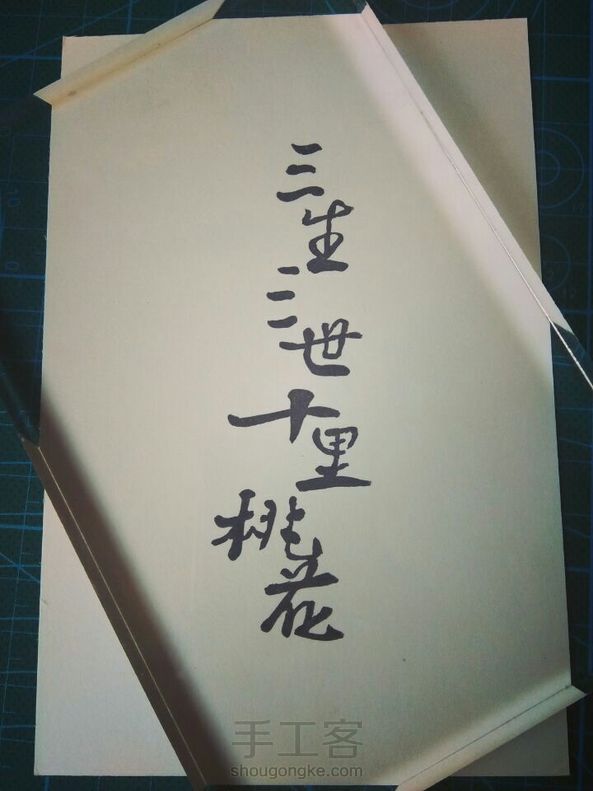 三生三世十里桃花
手工客
shougongke.com